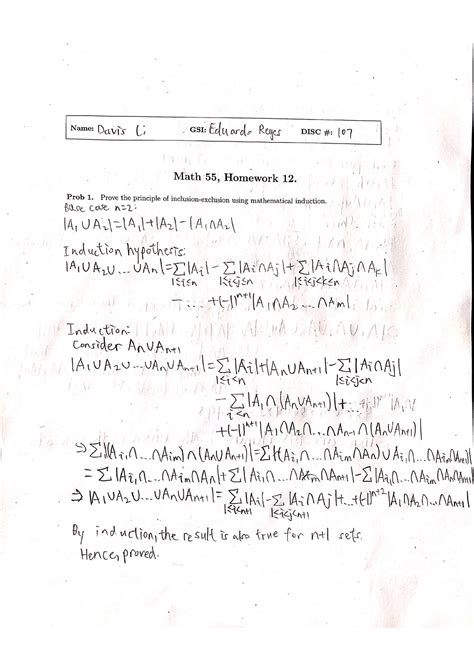 Name: Davis Li GSI: Eduardo Reyes DISC #: 107
Math 55, Homework 12.
Prob 1. Prove the principle of inclusion-exclusion using mathematical induction.
Base case n=2:
|A₁∪A₂|=|A₁|+|A₂|-|A₁∩A₂|
Induction hypothesis:
|A₁∪A₂∪...∪Aₙ|=∑|Aᵢ|-∑|Aᵢ∩Aⱼ|+∑|Aᵢ∩Aⱼ∩Aₖ|
1≤i≤n 1≤i<j≤n 1≤i<j<k≤n
-...+(-1)ⁿ⁺¹|A₁∩A₂...∩Aₙ|
Induction:
Consider Aₙ∪Aₙ₊₁
|A₁∪A₂∪...∪Aₙ∪Aₙ₊₁|=∑|Aᵢ|+|Aₙ∪Aₙ₊₁|-∑|Aᵢ∩Aⱼ|
1≤i<n 1≤i<j<n
-∑|Aᵢ∩(Aₙ∪Aₙ₊₁)|+...
1≤i<n
+(-1)ⁿ⁺¹|A₁∩A₂...∩Aₙ₋₁∩(Aₙ∪Aₙ₊₁)|
⇒∑|(Aᵢ∩...∩Aᵢₘ)∩(Aₙ∪Aₙ₊₁)|=∑|(Aᵢ∩...∩Aᵢₘ∩Aₙ)∪(Aᵢ∩...∩Aᵢₘ∩Aₙ₊₁)|
=∑|Aᵢ∩...∩Aᵢₘ∩Aₙ|+∑|Aᵢ∩...∩Aᵢₘ∩Aₙ₊₁|-∑|Aᵢ∩...∩Aᵢₘ∩Aₙ∩Aₙ₊₁|
⇒|A₁∪A₂∪...∪Aₙ∪Aₙ₊₁|=∑|Aᵢ|-∑|Aᵢ∩Aⱼ|+...+(-1)ⁿ⁺²|A₁∩A₂∩...∩Aₙ₊₁|
By induction, the result is also true for n+1 sets.
Hence, proved.